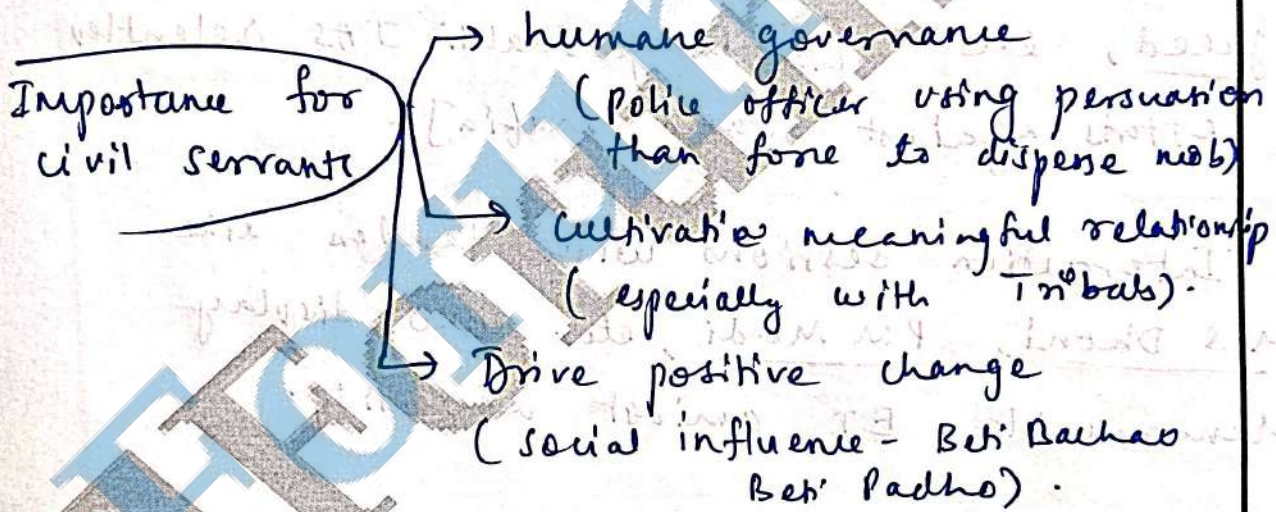 → humane governance
Importance for
civil servants
(police officer using persuation
than force to disperse mob)
→ Cultivative meaningful relationship
(especially with Tribals).
→ Drive positive change
(social influence - Beti Bachao
Beti Padho).